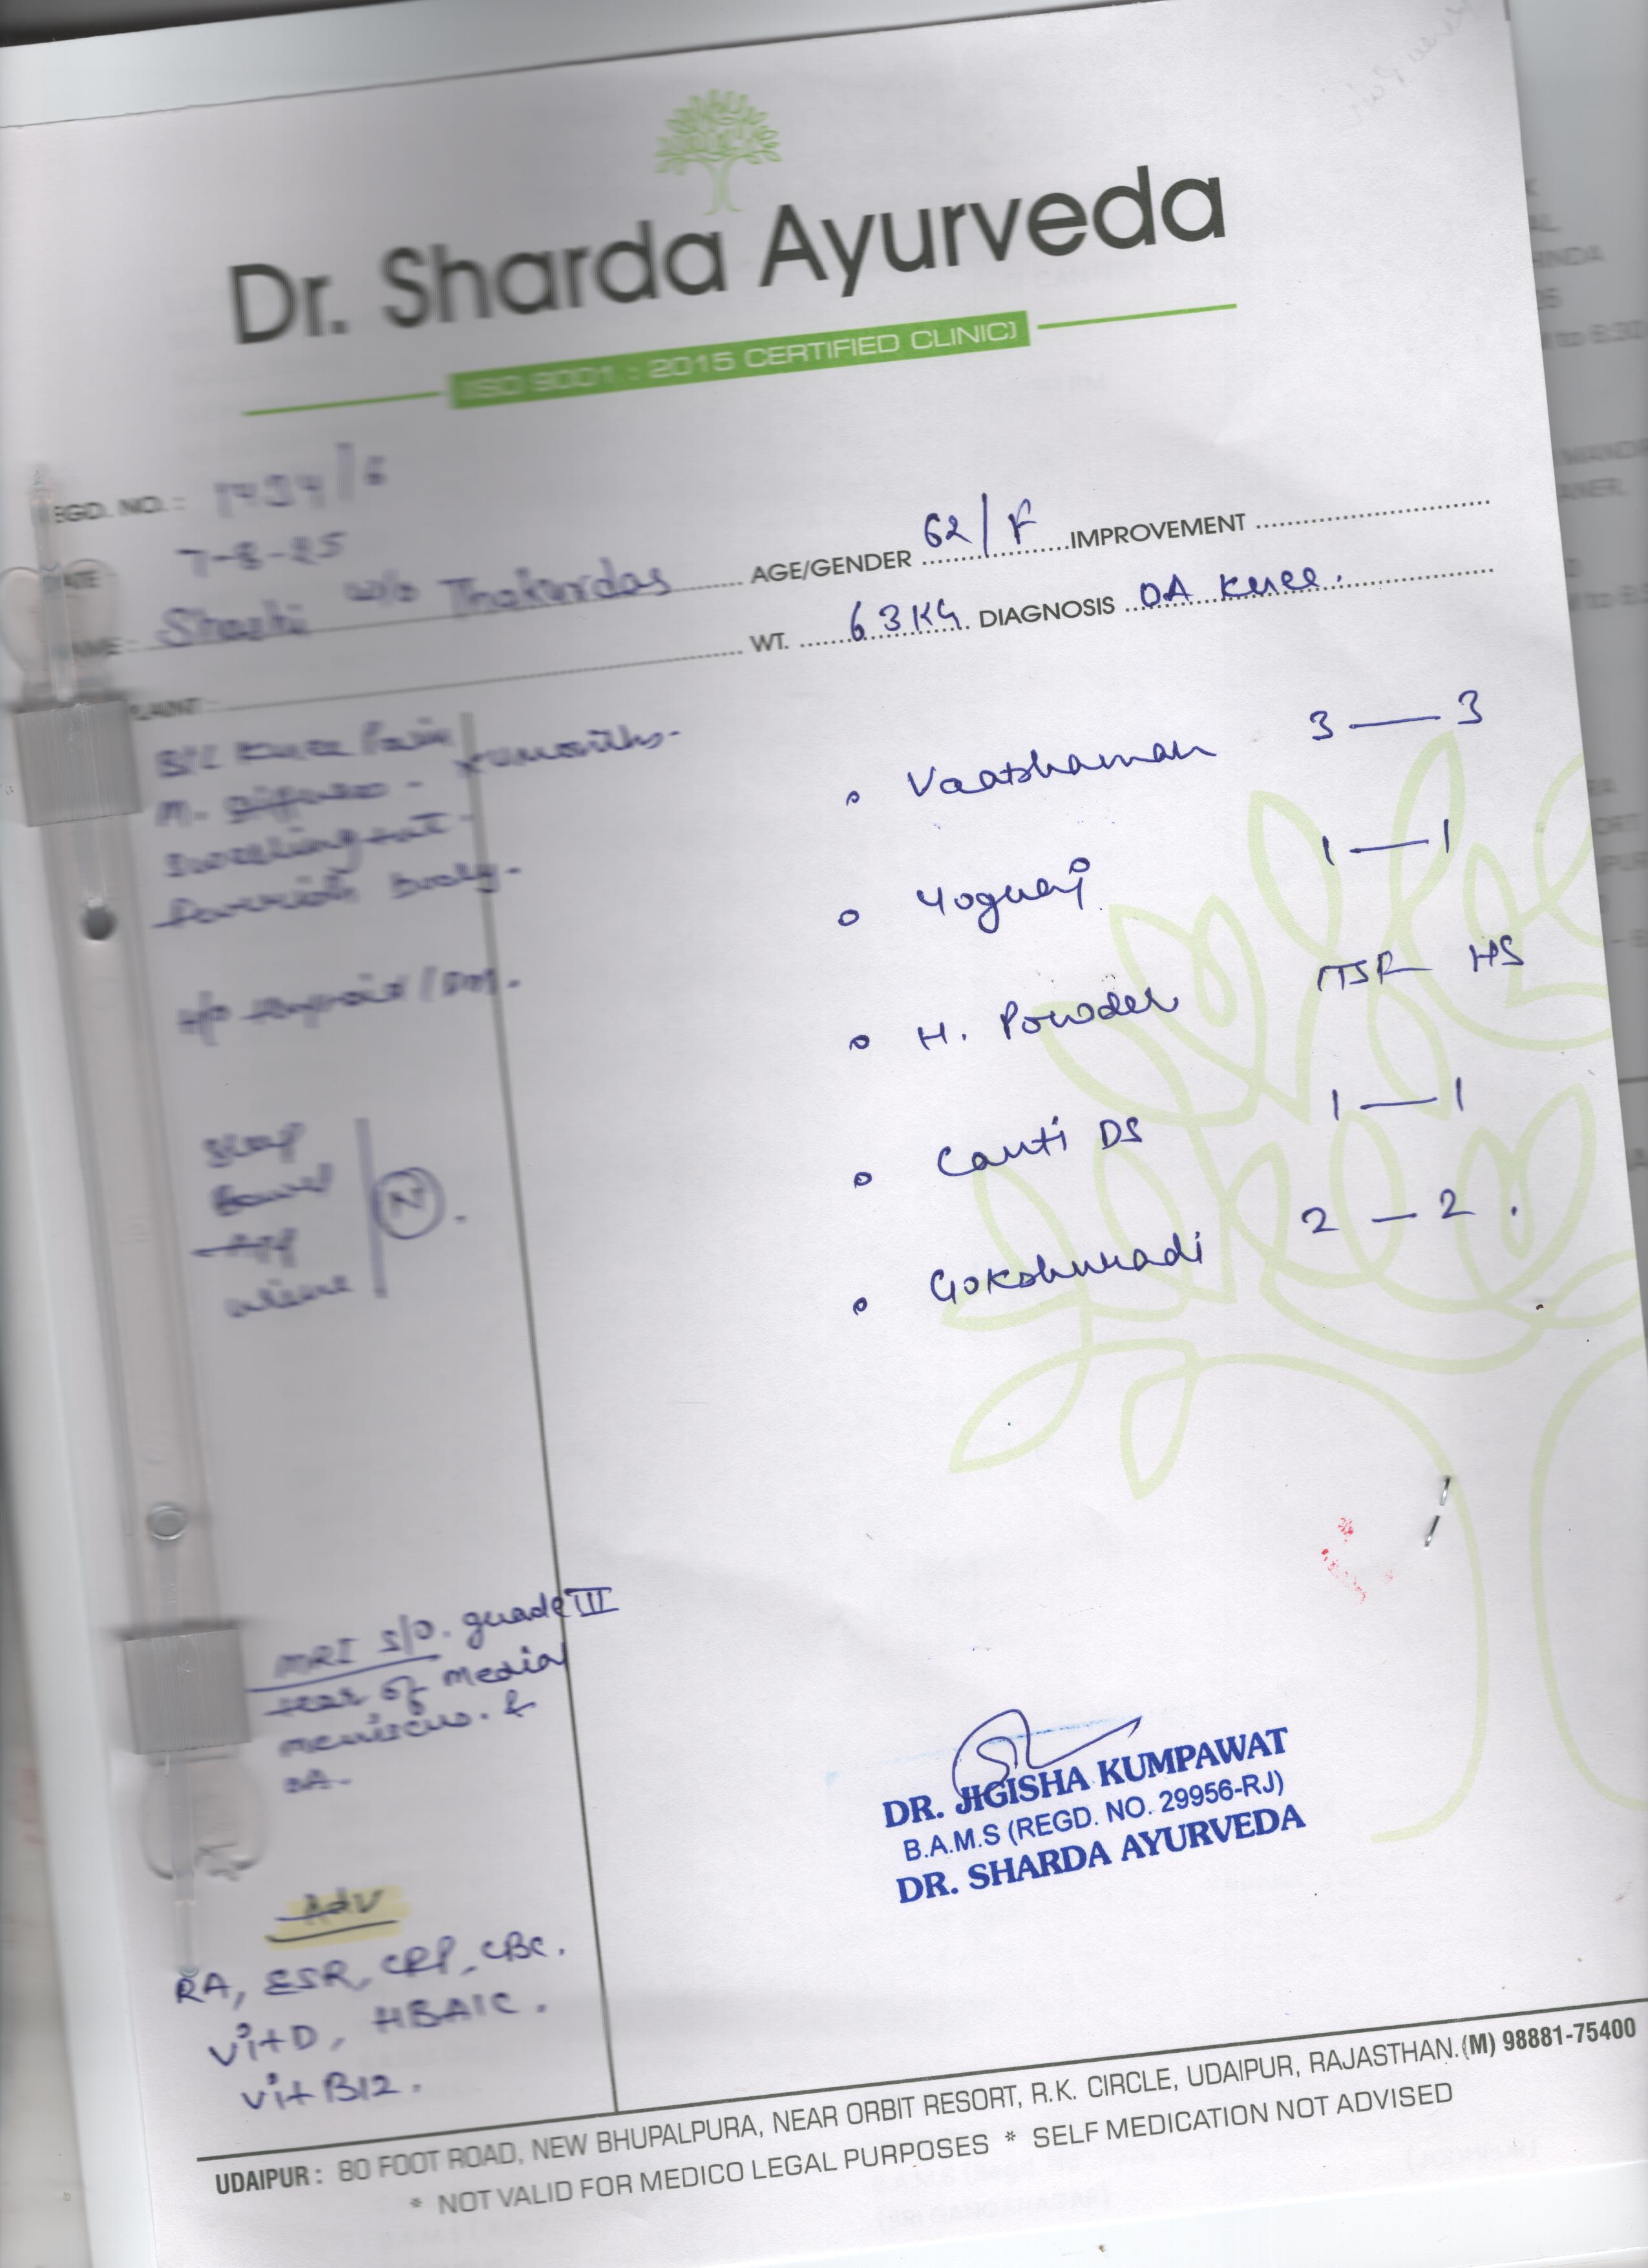 Dr. Sharda Ayurveda
(ISO 9001 : 2015 CERTIFIED CLINIC)
EGD. NO. :
7-8-25
Shashi w/o Thakurdas
AGE/GENDER 62/F IMPROVEMENT
WT. 63KG DIAGNOSIS OA Knee.
B/L Knee Pain
M. stiffness -
swelling
body.
H/o thyroid / DM.
Sleep
Bowel
App
urine
N
• Vaatshaman 3 — 3
• Yograj 1 — 1
• H. Powder 1TSF HS
• Carti DS 1 — 1
• Gokshuradi 2 — 2 .
MRI s/o. grade III
tear of medial
meniscus. &
OA-
Adv
RA, ESR, CRP, CBC.
Vit D, HBA1C.
Vit B12.
DR. JIGISHA KUMPAWAT
B.A.M.S (REGD. NO. 29956-RJ)
DR. SHARDA AYURVEDA
UDAIPUR : 80 FOOT ROAD, NEW BHUPALPURA, NEAR ORBIT RESORT, R.K. CIRCLE, UDAIPUR, RAJASTHAN. (M) 98881-75400
* NOT VALID FOR MEDICO LEGAL PURPOSES * SELF MEDICATION NOT ADVISED